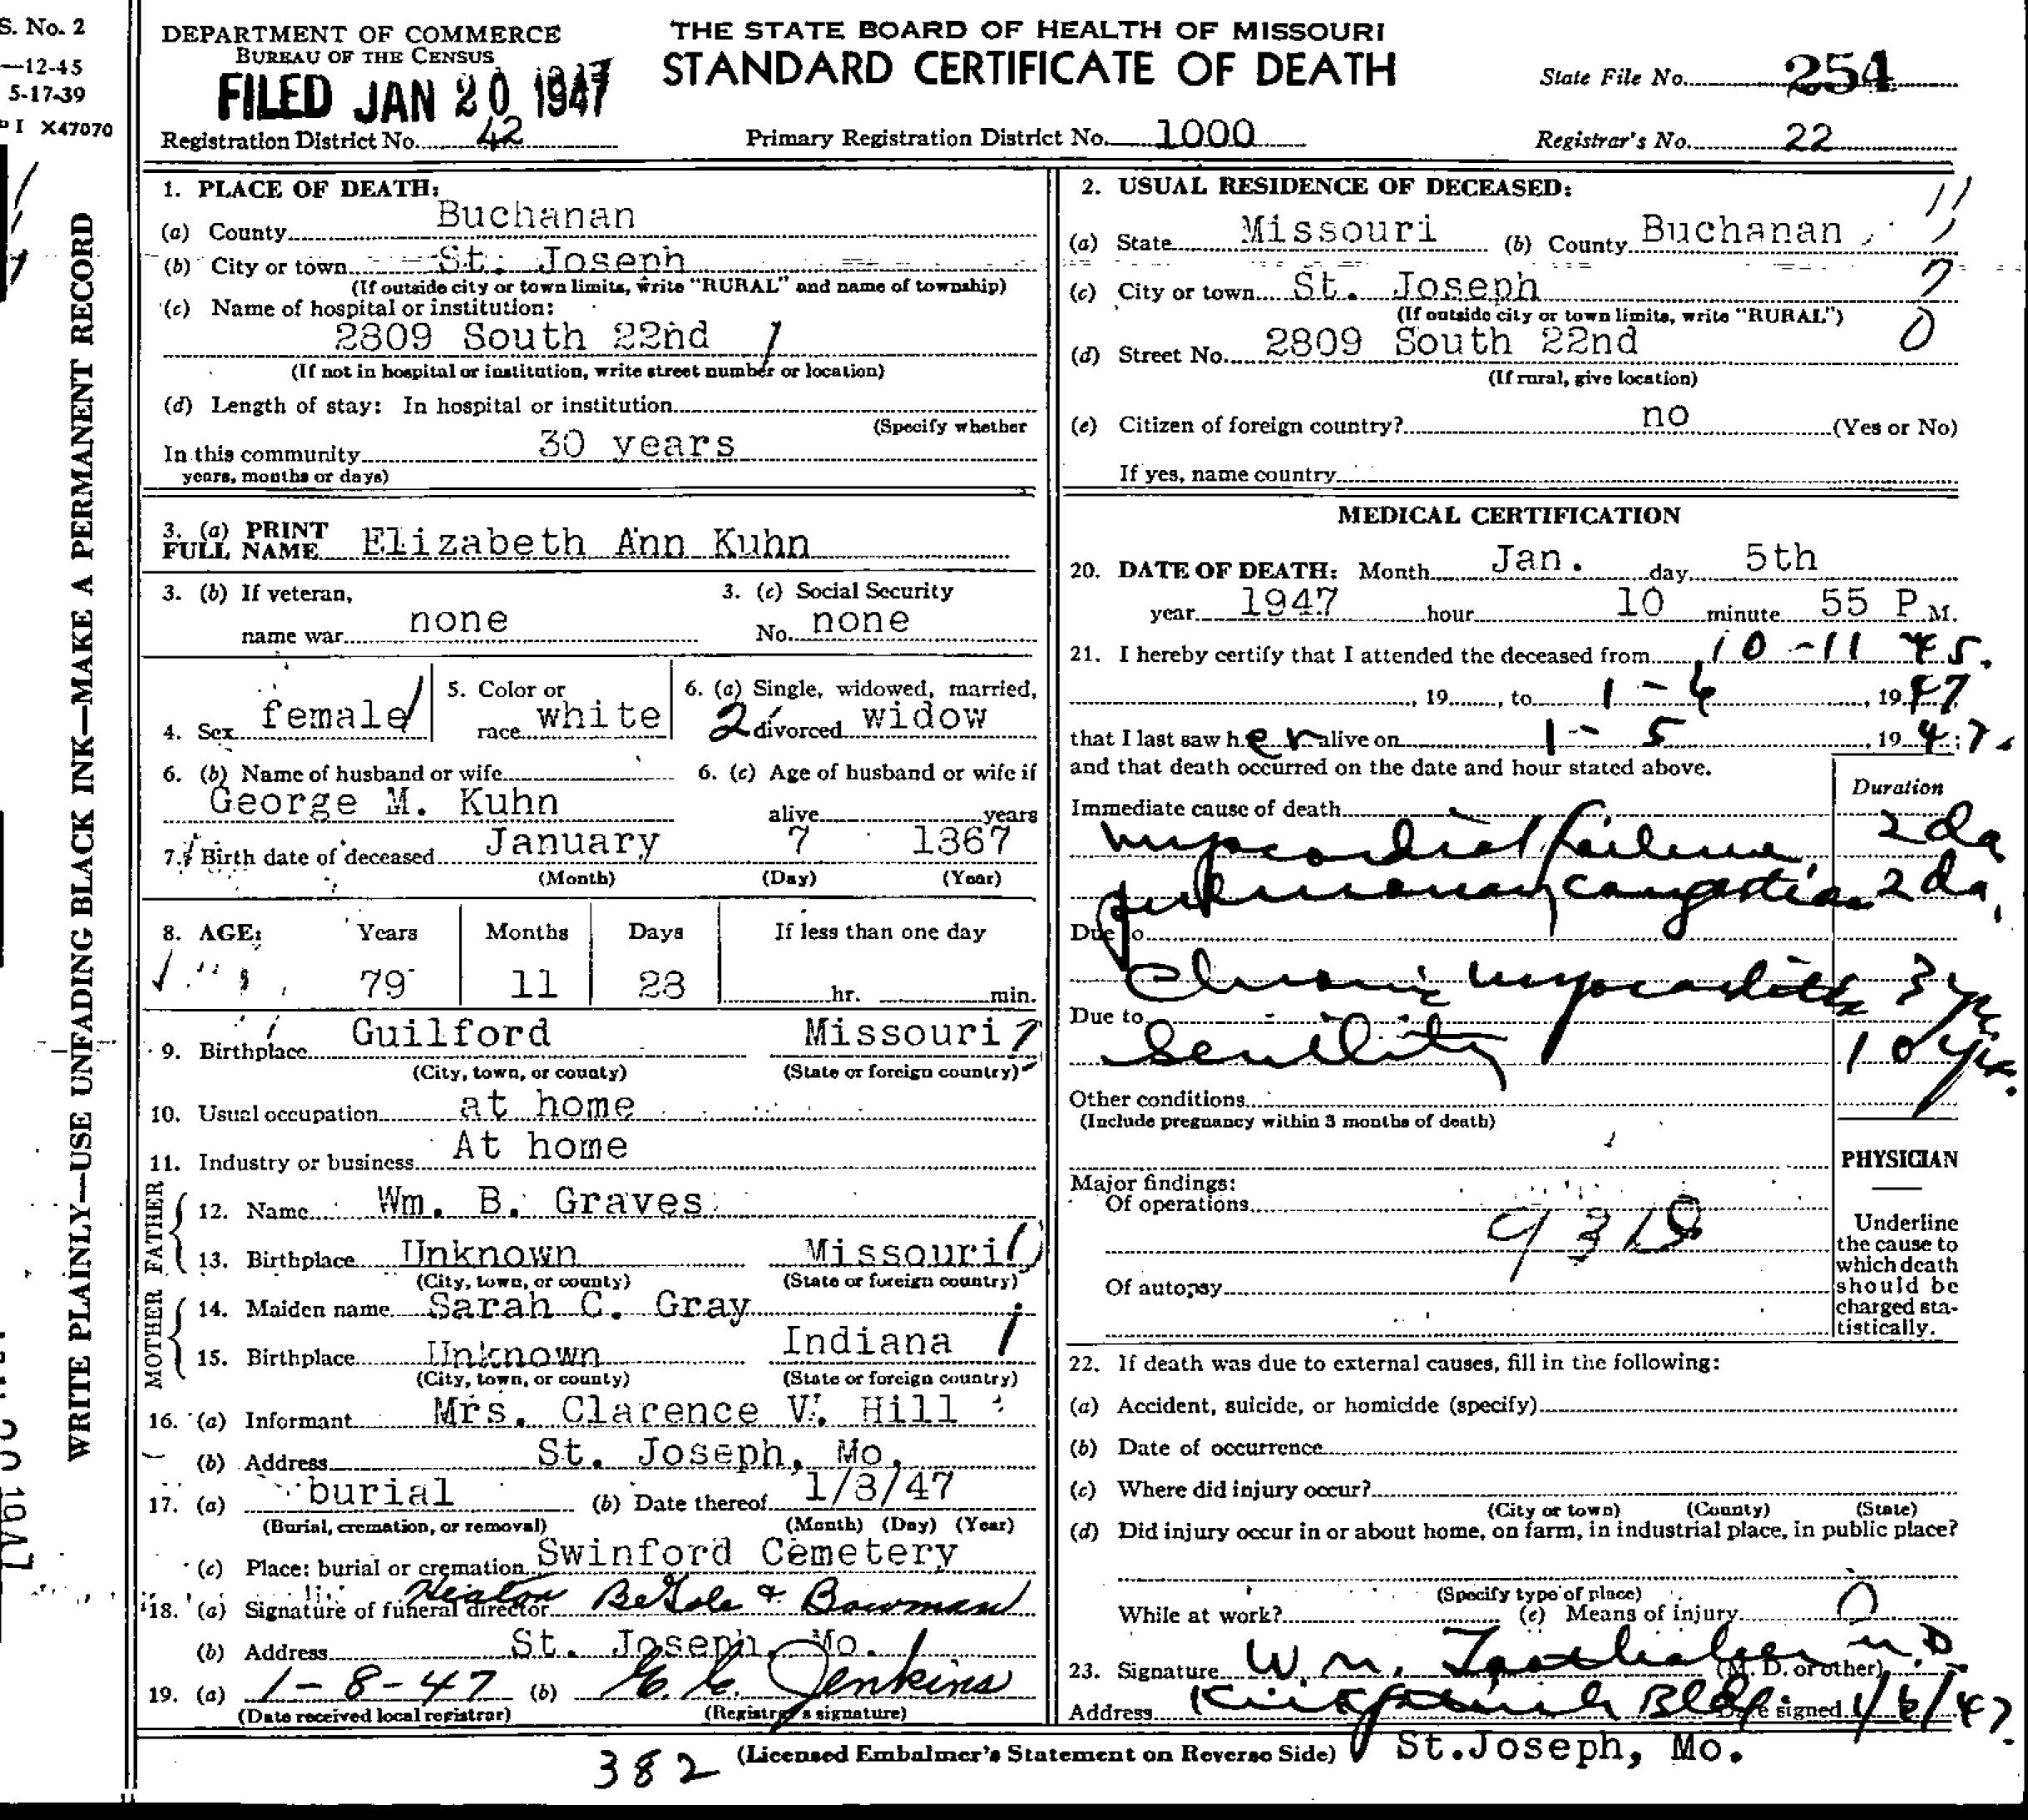 S. No. 2
—12-45
5-17-39
I X47070
WRITE PLAINLY—USE UNFADING BLACK INK—MAKE A PERMANENT RECORD
DEPARTMENT OF COMMERCE
BUREAU OF THE CENSUS
FILED JAN 20 1947
THE STATE BOARD OF HEALTH OF MISSOURI
STANDARD CERTIFICATE OF DEATH
State File No. 254
Registration District No. 42
Primary Registration District No. 1000
Registrar's No. 22
1. PLACE OF DEATH:
(a) County Buchanan
(b) City or town St. Joseph
(If outside city or town limits, write "RURAL" and name of township)
(c) Name of hospital or institution:
2809 South 22nd 1
(If not in hospital or institution, write street number or location)
(d) Length of stay: In hospital or institution
(Specify whether
In this community 30 years
years, months or days)
3. (a) PRINT
FULL NAME Elizabeth Ann Kuhn
3. (b) If veteran,
name war none
3. (c) Social Security
No. none
4. Sex female
5. Color or
race white
6. (a) Single, widowed, married,
2 divorced widow
6. (b) Name of husband or wife
George M. Kuhn
6. (c) Age of husband or wife if
alive years
7. Birth date of deceased January 7 1867
(Month) (Day) (Year)
8. AGE: Years Months Days If less than one day
79 11 28 hr. min.
9. Birthplace Guilford Missouri
(City, town, or county) (State or foreign country)
10. Usual occupation at home
11. Industry or business At home
FATHER
12. Name Wm. B. Graves
13. Birthplace Unknown Missouri
(City, town, or county) (State or foreign country)
MOTHER
14. Maiden name Sarah C. Gray
15. Birthplace Unknown Indiana 1
(City, town, or county) (State or foreign country)
16. (a) Informant Mrs. Clarence V. Hill
(b) Address St. Joseph, Mo.
17. (a) burial (b) Date thereof 1/8/47
(Burial, cremation, or removal) (Month) (Day) (Year)
(c) Place: burial or cremation Swinford Cemetery
18. (a) Signature of funeral director Heaton BeGole & Bowman
(b) Address St. Joseph, Mo.
19. (a) 1-8-47 (b) Jenkins
(Date received local registrar) (Registrar's signature)
2. USUAL RESIDENCE OF DECEASED:
(a) State Missouri (b) County Buchanan
(c) City or town St. Joseph 7
(If outside city or town limits, write "RURAL")
(d) Street No. 2809 South 22nd 0
(If rural, give location)
(e) Citizen of foreign country? no (Yes or No)
If yes, name country
MEDICAL CERTIFICATION
20. DATE OF DEATH: Month Jan. day 5th
year 1947 hour 10 minute 55 P M.
21. I hereby certify that I attended the deceased from 10-11 45.
, 19 , to 1-6 , 1947
that I last saw her alive on 1-5 , 1947.
and that death occurred on the date and hour stated above.
Duration
Immediate cause of death
myocardial failure, 2 da
pulmonary congestion 2 da,
Due to
Chronic myocarditis 3 yrs
Due to
Senility 10 yrs.
Other conditions
(Include pregnancy within 3 months of death)
Major findings:
Of operations
Of autopsy
PHYSICIAN
Underline
the cause to
which death
should be
charged sta-
tistically.
22. If death was due to external causes, fill in the following:
(a) Accident, suicide, or homicide (specify)
(b) Date of occurrence
(c) Where did injury occur?
(City or town) (County) (State)
(d) Did injury occur in or about home, on farm, in industrial place, in public place?
(Specify type of place)
While at work? (e) Means of injury 0
23. Signature Wm. M.D (M. D. or other)
Address Bldg signed 1/6/47.
St.Joseph, Mo.
382 (Licensed Embalmer's Statement on Reverse Side)